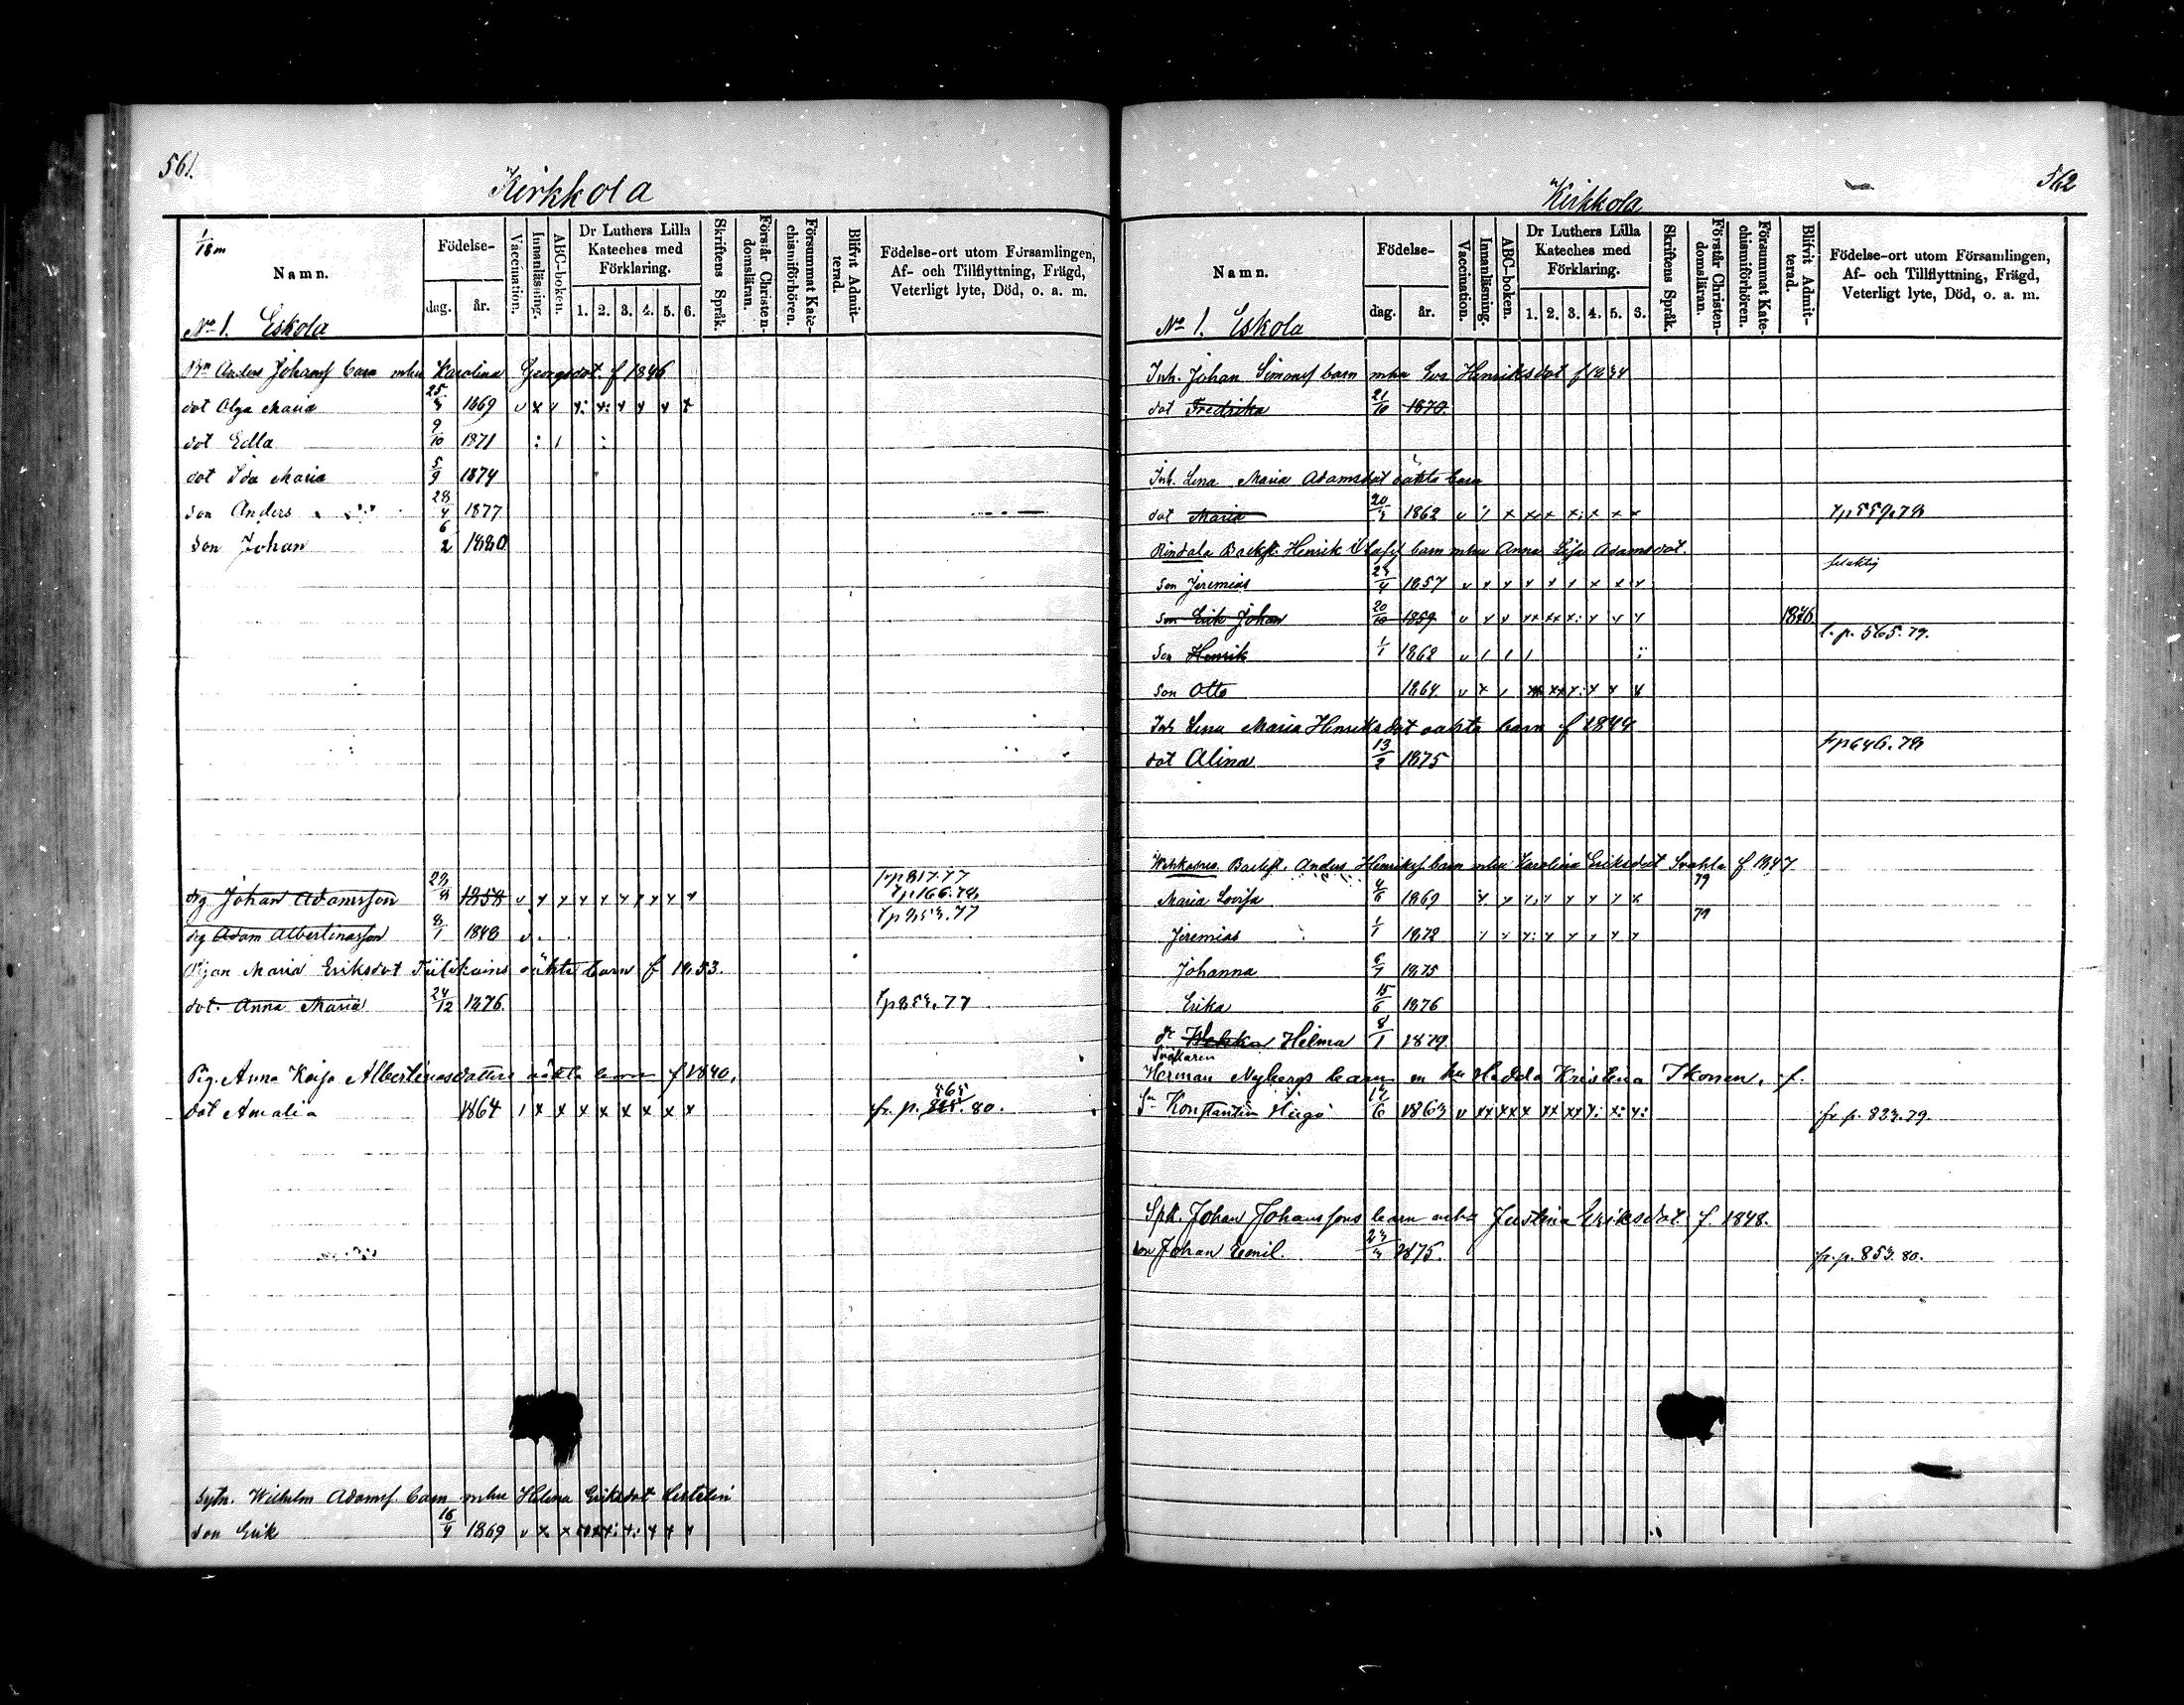 561.
Kirkkola
1/18 m
Namn.
Födelse-
dag. år.
Vaccination.
Innanläsning.
ABC-boken.
Dr Luthers Lilla Kateches med Förklaring.
1. 2. 3. 4. 5. 6.
Skriftens Språk.
Förstår Christendomsläran.
Försummat Katechismiförhören.
Blifvit Admitterad.
Födelse-ort utom Församlingen, Af- och Tillflyttning, Frägd, Veterligt lyte, Död, o. a. m.
No 1. Eskola
Anders Johans barn mhu Karolina Georgsdot. f 1846
dot Olga Maria 1869
dot Edla 9/10 1871
dot Ida Maria 5/9 1874
son Anders 28/4 1877
son Johan 6/2 1880
frp 817.77
drg Johan Adamsson 1858 tp 166.78
drg Adam Albertinasson 8/1 1848 tp 853.77
Pigan Maria Eriksdot oäkta barn f 1853.
dot. Anna Maria 24/12 1876 tp 853.77
Pig. Anna Kajsa Albertinasdotters oäkta barn f 1840.
dot Amalia 1864 fr. p. 565. 80.
Wilhelm Adams. barn mhu Helena Eriksdot
son Erik 16/4 1869
562
Kirkkola
Namn.
Födelse-
dag. år.
Vaccination.
Innanläsning.
ABC-boken.
Dr Luthers Lilla Kateches med Förklaring.
1. 2. 3. 4. 5. 6.
Skriftens Språk.
Förstår Christendomsläran.
Försummat Katechismiförhören.
Blifvit Admitterad.
Födelse-ort utom Församlingen, Af- och Tillflyttning, Frägd, Veterligt lyte, Död, o. a. m.
No 1. Eskola
Inh. Johan Simons barn mhu Eva Henriksdot f 1834
dot Fredrika 21/10 1870
Inh. Lena Maria Adamsdot oäkta barn
dot Maria 1862 tp 559.78
Rindala Backst. Henrik barn mhu Anna Lisa Adamsdot.
son Jeremias 1857
son Erik Johan 20/10 1859 1876
son Henrik 1/1 1862 t. p. 565. 79.
son Otto 1864
Inh Lena Maria Henriksdot oäkta barn f 1844
dot Alina 13/2 1875 tp 646.78
Backst. Anders Henriks. barn mhu Karolina Eriksdot f 1847
Maria Lovisa 4/6 1869 79
Jeremias 1/1 1872 79
Johanna 1875
Erika 15/6 1876
Helma 8/1 1879.
Herman Nybergs barn m hu Hedda Kristina Ikonen, f.
Konstantin Hugo 12/6 1863 fr p. 823. 79.
Johan Johanssons barn mhu Justina Eriksdot. f. 1848.
son Johan Emil. 1875. fr. p. 853. 80.